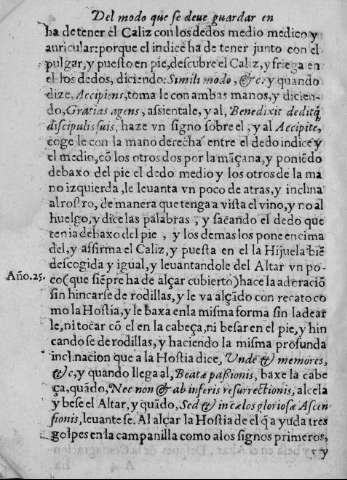 Del modo que se deue guardar en
ha de tener el Caliz con los dedos medio medico y
auricular: porque el indice ha de tener junto con el
pulgar, y puesto en pie, descubre el Caliz, y friega en
el los dedos, diciendo: Simili modo, &c. y quando
dize, Accipiens, toma le con ambas manos, y dicien-
do, Gratias agens, assientale, y al, Benedixit deditq;
discipulis suis, haze vn signo sobre el, y al Accipite,
coge le con la mano derecha entre el dedo indice y
el medio, cõ los otros dos por la mãçana, y poniẽdo
debaxo del pie el dedo medio y los otros de la ma
no izquierda, le leuanta vn poco de atras, y inclina
al rostro, de manera que tenga a vista el vino, y no al
huelgo, y dice las palabras, y sacando el dedo que
tenia debaxo del pie, y los demas los pone encima
del, y affirma el Caliz, y puesta en el la Hijuela biẽ
descogida y igual, leuantandole del Altar vn po-
Año. 25. co (que siẽpre ha de alçar cubierto) hace la aderaciõ
sin hincarse de rodillas, y le va alçãdo con recato co
mo la Hostia, y le baxa en la misma forma sin ladear
le, ni tocar cõ el en la cabeça, ni besar en el pie, y hin
cando se de rodillas, y haciendo la misma profunda
inclinacion que a la Hostia dice, Unde & memores,
&c, y quando llega al, Beatæ passionis, baxe la cabe
ça, quãdo, Nec non & ab inferis resurrectionis, alcela
y bese el Altar, y quãdo, Sed & in cælos gloriosæ Ascen-
sionis, leuante se. Al alçar la Hostia de el q̃ ayuda tres
golpes en la campanilla como a los signos primeros,